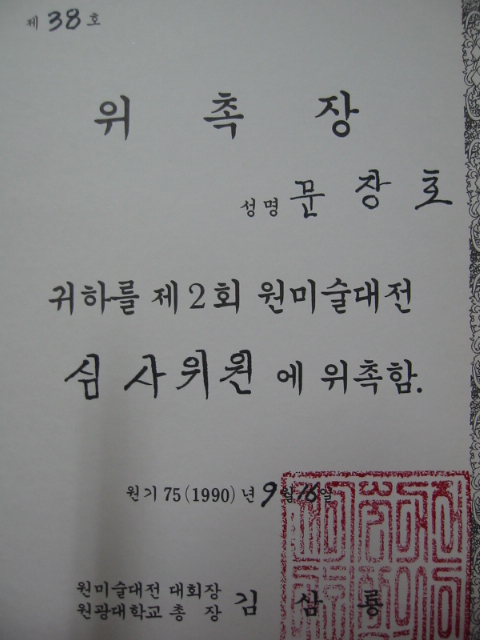 제 38 호
위 촉 장
성명 문 창 호
귀하를 제 2 회 원미술대전
심사위원 에 위촉함.
원기 75 (1990) 년 9 월 16 일
원미술대전 대회장
원광대학교 총 장 김 삼 룡